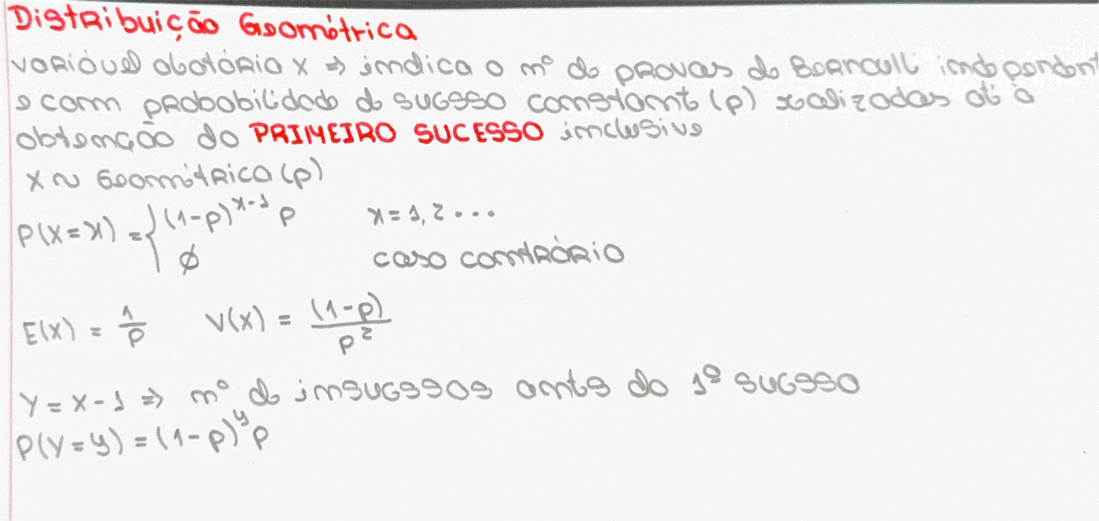 Distribuição Geométrica
variável aleatória X ⇒ indica o nº de provas de Bernoulli independent
e com probabilidade de sucesso constante (p) realizadas até à
obtenção do PRIMEIRO SUCESSO inclusive
X ~ Geométrica (p)
P(X=x) = { (1-p)^{x-1} p x = 1, 2 ...
∅ caso contrário
E(X) = 1/p V(X) = (1-p)/p²
Y = X - 1 ⇒ nº de insucessos antes do 1º sucesso
P(Y=y) = (1-p)^y p